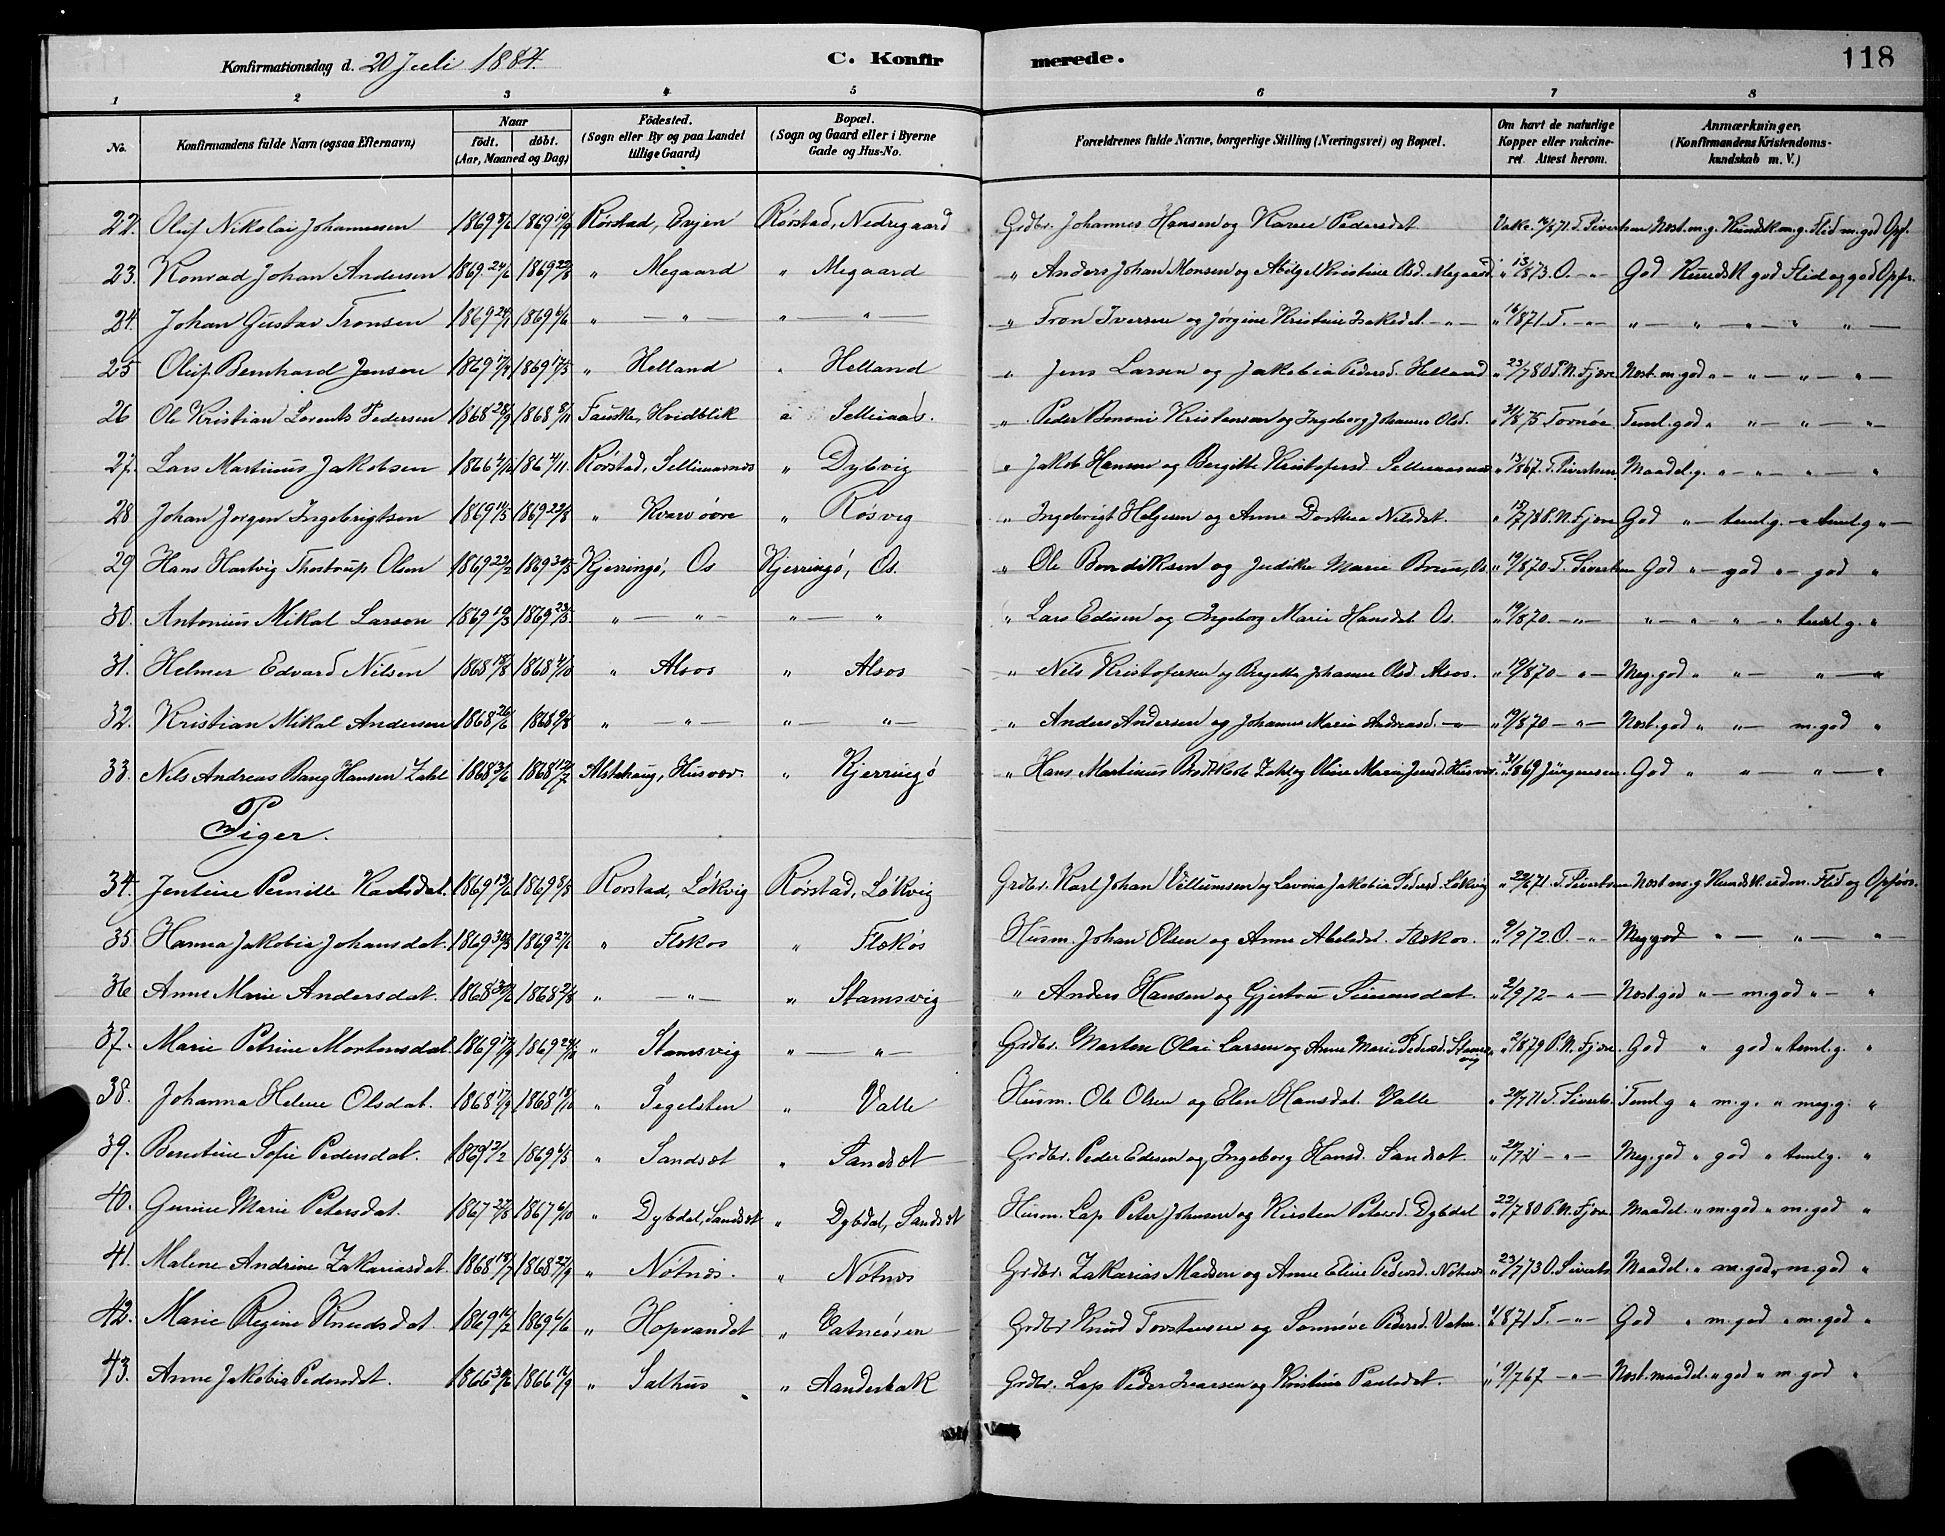 Konfirmationsdag d. 20 Juli 1884. C. Konfirmerede. 118
1 2 3 4 5 6 7 8
No. Konfirmandens fulde Navn (ogsaa Efternavn) Naar født. døbt. (Aar, Maaned og Dag) Fødested. (Sogn eller By og paa Landet tillige Gaard) Bopæl. (Sogn og Gaard eller i Byerne Gade og Hus-No. Forældrenes fulde Navne, borgerlige Stilling (Næringsvei) og Bopæl. Om havt de naturlige Kopper eller vakcineret. Attest herom. Anmærkninger. (Konfirmandens Kristendomskundskab m. V.)
22. Oluf Nikolai Johannesen 1869 1869 19/9 Rørstad, Evjen Rørstad, Nedregaard Grdbr. Johannes Hansen og Karen Pedersdat. Vakc. T. Sivertsen Nost. m. g. Kundsk. m. g. Flid m. god Opf.
23. Konrad Johan Andersen 1869 24/6 1869 22/8 " Megaard " Megaard " Anders Johan Monsen og Abigel Kristine Olsd. Megaard " 13/8 73. O. — " — God Kundsk god Flid og god Opfr.
24. Johan Gustav Tronsen 1869 1869 6/6 " — " — " — " — " Tron Iversen og Jørgine Kristine Isaksd. — " — " 16/8 71 T. — " — " — " — " — " " —
25 Oluf Bernhard Jensen 1869 17/4 1869 17/5 " Helland " Helland " Jens Larsen og Jakobia Pedersd. Helland " 23/7 80 P. N. Fjære Nost. m. god " — " — " — " —
26 Ole Kristian Lorents Pedersen 1868 28/9 1868 8/11 Fauske, Hvidblik " Selliaas. " Peder Benoni Kristensen og Ingeborg Johanna Olsd. " 31/8 75 Tornøe Teml. god " " — " — " —
27. Lars Martinus Jakobsen 1866 186 4/11. Rørstad, Selliaasnes " Dybvig " Jakob Hansen og Bergitte Kristofersd. Selliaasnes " 13/8 67. T. Sivertsen Maadel. g. " — " — " "
28 Johan Jørgen Ingebrigtsen 1869 14/5 1869 22/8 " Kvarvøvre " Røsvig " Ingebrigt Helgesen og Anne Dorthea Nilsdat. " 15/7 78 P. N. Fjære God " — teml. g. — " teml. g " —
29 Hans Hartvig Thostrup Olsen 1869 22/2 1869 30/5 Kjerringø, Os Kjerringø, Os. " Ole Bendiksen og Judikte Marie Bruun, Os. " 19/8 70. T. Sivertsen God " — god " — god "
30. Antonius Nikal Larsen 1869 19/3 1869 23/5. " — " — " — " " Lars Edisen og Ingeborg Marie Hansdat. Os. " 19/8 70. — " — " — " — " — " teml. g. "
31. Helmer Edvard Nilsen 1868 18/8 1868 4/10 " Alsos " Alsos " Nils Kristofersen og Bergitte Johanna Olsd. Alsos. " 19/8 70 — " — Meg. god " " — " — "
32. Kristian Nikal Andersen 1868 26/6 1868 9/8 " — " — " — " — " Anders Andersen og Johanna Maria Andreasd. — " — " 19/8 70 — " — Nost. god " " — m. god "
33. Nils Andreas Bang Hansen Zahl 1868 3/6 1868 12/7 Alstahaug, Husvær. " Kjerringø " Hans Martinus Brodtkorb Zahl og Oline Marie Jensd. Husvær. " 3/8 69 Jürgensen. God " " — " — "
Piger.
34. Jentine Pernille Karlsdat. 1869 13/6 1869 8/8 Rørstad, Løkvig Rørstad, Løkvig Grdbr. Karl Johan Villumsen og Lavina Jakobia Pedersd. Løkvig " 22/6 71. T. Sivertsen Nost. m. g. Kundsk. udm. Flid og Opførs.
35. Hanna Jakobia Johansdat. 1869 30/3 1869 27/6 " Flekos " Flekøs Husm. Johan Olsen og Anne Abelsd. Flekos. " 2/9 72 O. — " — Meg. god " — " — "
36 Anne Marie Andersdat. 1868 1868 2/8 " — " — " Stamsvig " Anders Hansen og Gjertrud Simonsdat. " 2/9 72 — " — Nost. god " — m. god " — "
37. Marie Petrine Mortensdat. 1869 17/9 1869 24/10 " Stamsvig " — " — Grdbr. Morten Olai Larsen og Anne Marie Pedersd. Stamsvig " 2/8 79 P. N. Fjære. God " god " teml. g. "
38. Johanna Helene Olsdat. 1868 17/9 1868 18/10 " Segelsten " Valle Husm. Ole Olsen og Elen Hansdat. Valle " 24/7 71 T. Sivertsen. Teml. g " m. g. " meg. g. "
39. Berntine Sofie Pedersdat. 1869 21/2 1869 6/5 " Sandset " Sandset Grdbr. Peder Edisen og Ingeborg Hansd. Sandset " 24/7 71 — " — Meg. god " god " teml. g. "
40. Gurine Marie Petersdat. 1867 27/8 1867 6/10 " Dybdal, Sandset " Dybdal, Sandset Husm. Lap Peter Johnsen og Kirsten Petersd. Dybdal " 22/7 80 P. N. Fjære. Maadel. " m. god " m. god "
41. Malene Andrine Zakariasdat. 1868 18/7 1868 27/9 " Nøtnes. " Nøtnes Grdbr. Zakarias Madsen og Anne Eline Pedersd. Nøtnes " 23/7 73 O. Sivertsen Maadel. " m. god " m. god "
42. Marie Regine Knudsdat. 1869 14/2 1869 6/6 " Hopvandet " Vatnøren Grdbr. Knud Torstensen og Sønnøve Pedersd. Vatn. " 71 T. — " — God " m. god " m. god "
43. Anne Jakobia Pedersdat. 1866 30/6 1866 16/9 " Salhus " Aanderbak Grdbr. Lap Peder Ivarsen og Kristina Paulsdat. " 9/7 67 — " — Nost. maadel. " god " m. god "